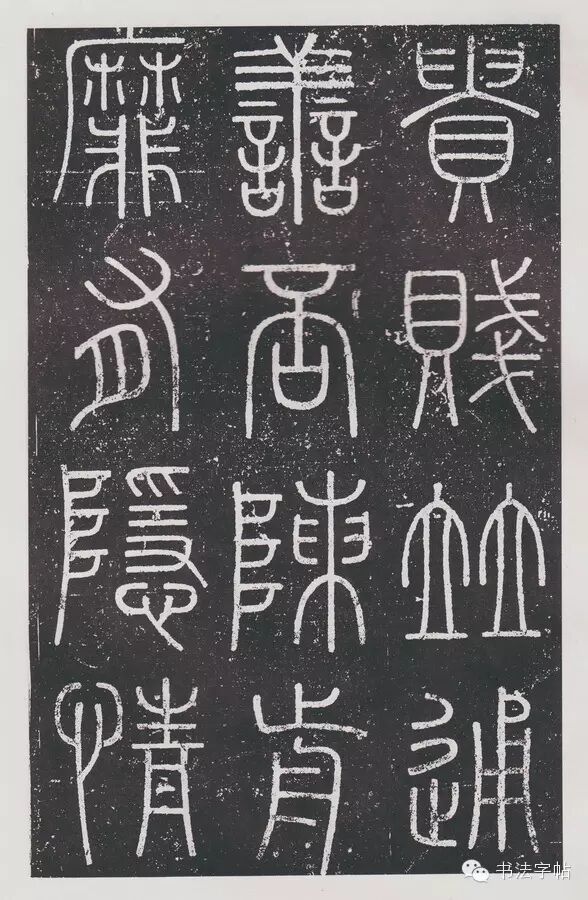 貴賤並通
善否陳前
靡有隱情
书法字帖